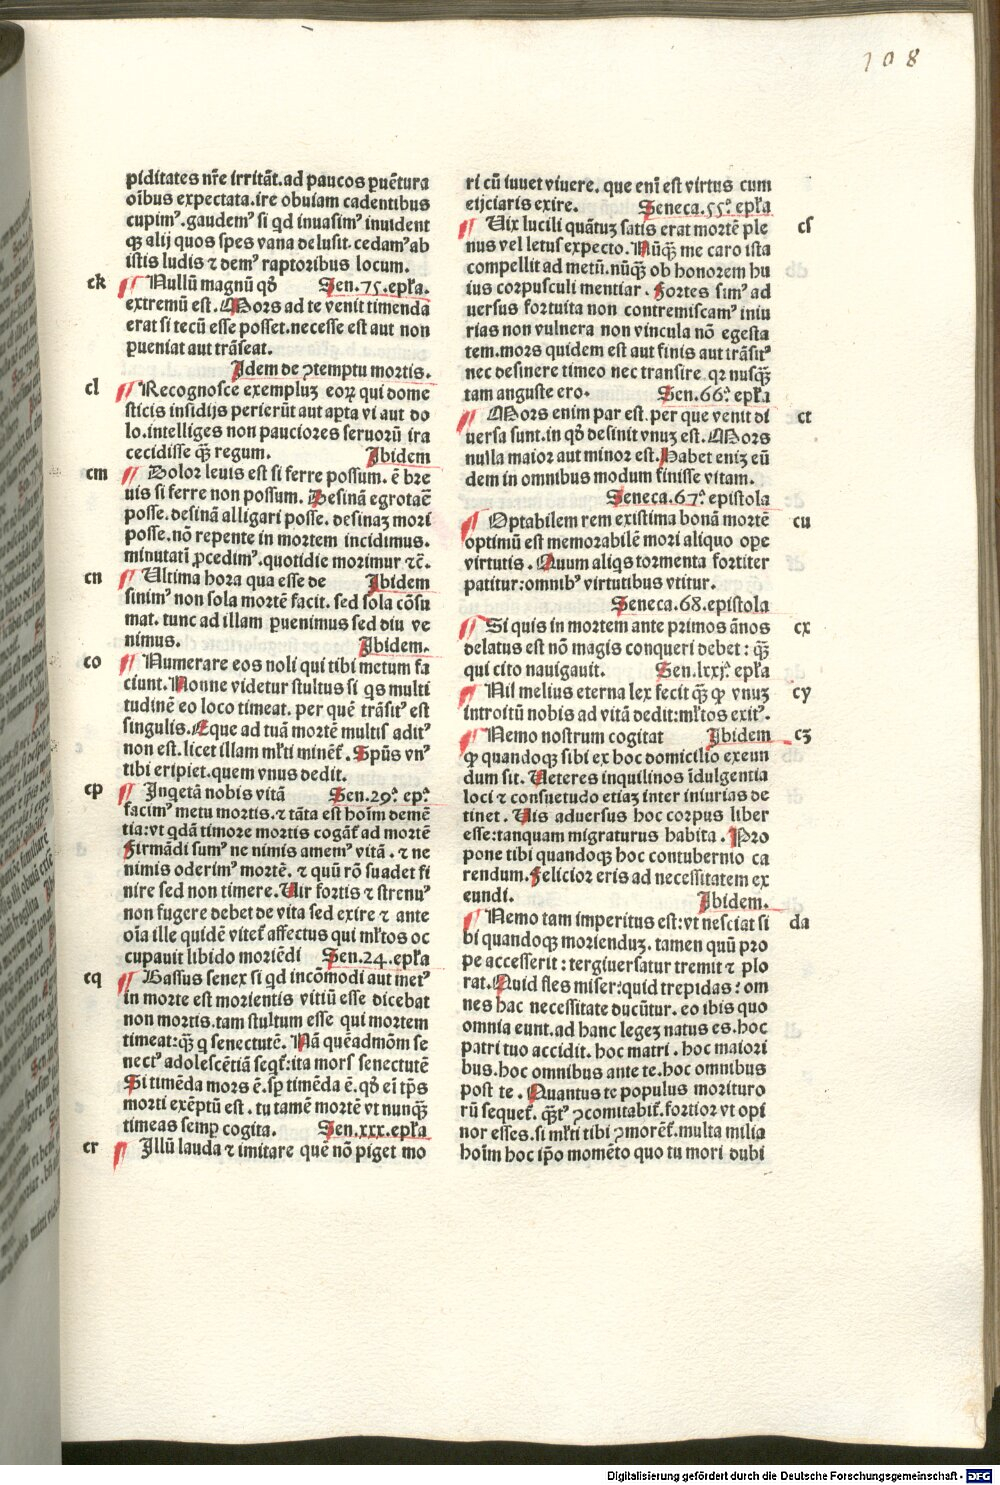 108
piditates nr̄e irritāt.ad paucos ꝑuētura
oībus expectata.ire obuiam cadentibus
cupimꝰ.gaudemꝰ si qd inuasimꝰ inuident
qꝫ alij quos spes vana delusit.cedamꝰ ab
istis ludis ⁊ demꝰ raptoribus locum.
ck ¶ Nullū magnū qd̄ Sen.75.epl̄a.
extremū est.Mors ad te venit timenda
erat si tecū esse posset.necesse est aut non
ꝑueniat aut trāseat.
Idem de ꝯtemptu mortis.
cl ¶ Recognosce exempluꝫ eoꝝ qui dome
sticis insidijs perierūt aut apta vi aut do
lo.intelliges non pauciores seruorū ira
cecidisse qꝫ̄ regum. Ibidem
cm ¶ Dolor leuis est si ferre possum. ē bre
uis si ferre non possum. Desinā egrotare
posse.desinā alligari posse.desinaꝫ mori
posse.nō repente in mortem incidimus.
minutati ꝓcedimꝰ.quotidie morimur ⁊c̄.
cn ¶ Ultima hora qua esse de Ibidem
sinimꝰ non sola mortē facit. sed sola cōsu
mat. tunc ad illam ꝑuenimus sed diu ve
nimus. Ibidem.
co ¶ Numerare eos noli qui tibi metum fa
ciunt.Nonne videtur stultus si qs multi
tudinē eo loco timeat. per quē trāsitꝰ est
singulis.Eque ad tuā mortē multis aditꝰ
non est.licet illam ml̄ti minēt̄. Spūs vnꝰ
tibi eripiet.quem vnus dedit.
cp ¶ Ingetā nobis vitā Sen.29ͣ. epͣ.
facimꝰ metu mortis.⁊ tāta est hoīm demē
tia:vt qdā timore mortis cogāt̄ ad mortē
Firmādi sumꝰ ne nimis amemꝰ vitā. ⁊ ne
nimis oderimꝰ mortē. ⁊ quū rō suadet fi
nire sed non timere.Uir fortis ⁊ strenuꝰ
non fugere debet de vita sed exire ⁊ ante
oīa ille quidē vitet̄ affectus qui ml̄tos oc
cupauit libido moriēdi Sen.24.epl̄a
cq ¶ Bassus senex si qd incōmodi aut metꝰ
in morte est morientis vitiū esse dicebat
non mortis.tam stultum esse qui mortem
timeat:qꝫ̄ q senectutē. Nā quēadmōm se
nectꝰ adolescētiā seqt̄:ita mors senectutē
Si timēda mors ē.sꝑ timēda ē.qd̄ eī tp̄s
morti exēptū est . tu tamē mortē vt nunqꝫ̄
timeas semꝑ cogita. Sen.xxx.epl̄a
cr ¶ Illū lauda ⁊ imitare quē nō piget mo
ri cū iuuet viuere. que enī est virtus cum
eijciaris exire. Seneca.55ͣ. epl̄a
¶ Uix lucili quātuꝫ satis erat mortē ple cs
nus vel letus expecto. Nūqꝫ̄ me caro ista
compellit ad metū.nūqꝫ̄ ob honorem hu
ius corpusculi mentiar . Fortes simꝰ ad
uersus fortuita non contremiscamꝰ iniu
rias non vulnera non vincula nō egesta
tem.mors quidem est aut finis aut trāsitꝰ
nec desinere timeo nec transire qꝛ nusqꝫ̄
tam anguste ero. Sen.66ͣ. epl̄a
¶ Mors enim par est.per que venit di ct
uersa sunt.in qd̄ desinit vnuꝫ est.Mors
nulla maior aut minor est.Habet eniꝫ eū
dem in omnibus modum finisse vitam.
Seneca.67ͣ. epistola
¶ Optabilem rem existima bonā mortē cu
optimū est memorabilē mori aliquo opꝑe
virtutis . Quum aliqs tormenta fortiter
patitur:omnibꝰ virtutibus vtitur.
Seneca.68.epistola
¶ Si quis in mortem ante primos ānos cx
delatus est nō magis conqueri debet : qꝫ̄
qui cito nauigauit. Sen.lxxjͣ. epl̄a
¶ Nil melius eterna lex fecit qꝫ̄ ꝙ vnuꝫ cy
introitū nobis ad vitā dedit:ml̄tos exitꝰ.
¶ Nemo nostrum cogitat Ibidem cz
ꝙ quandoqꝫ sibi ex hoc domicilio exeun
dum sit. Ueteres inquilinos īdulgentia
loci ⁊ consuetudo etiaꝫ inter iniurias de
tinet. Uis aduersus hoc corpus liber
esse:tanquam migraturus habita . Pro
pone tibi quandoqꝫ hoc contubernio ca
rendum.Felicior eris ad necessitatem ex
eundi. Ibidem.
¶ Nemo tam imperitus est:vt nesciat si da
bi quandoqꝫ morienduꝫ. tamen quū pro
pe accesserit : tergiuersatur tremit ⁊ plo
rat.Quid fles miser:quid trepidas: om
nes hac necessitate ducūtur. eo ibis quo
omnia eunt.ad hanc legeꝫ natus es.hoc
patri tuo accidit. hoc matri . hoc maiori
bus.hoc omnibus ante te.hoc omnibus
post te . Quantus te populus morituro
rū sequet̄. qꝫ̄tꝰ ꝯcomitabit̄.fortior vt opi
nor esses.si ml̄ti tibi ꝯmorēt̄.multa milia
hoīm hoc ip̄o momēto quo tu mori dubi
Digitalisierung gefördert durch die Deutsche Forschungsgemeinschaft - DFG